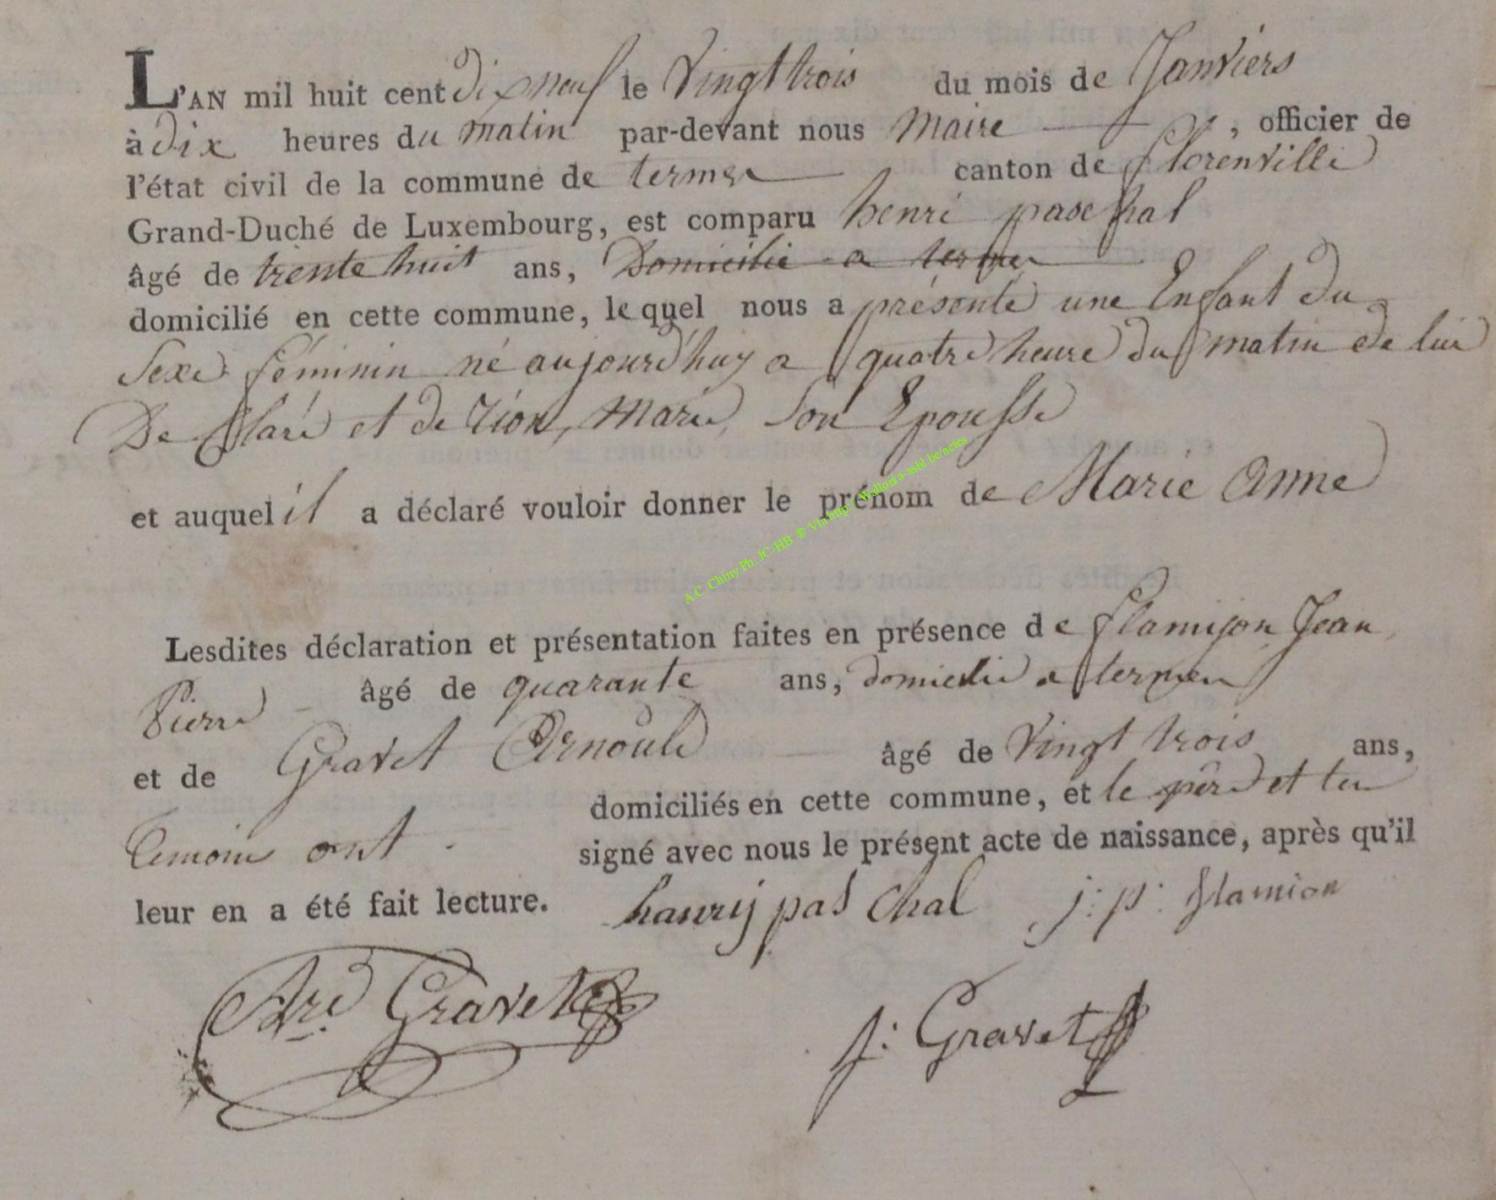 L'AN mil huit cent dix neuf le Vingt trois du mois de Janviers
à dix heures du matin par-devant nous Maire , officier de
l'état civil de la commune de termes canton de florenville
Grand-Duché de Luxembourg, est comparu henri paschal
âgé de trente huit ans, Domicilié a termes
domicilié en cette commune, lequel nous a présenté une Enfant du
Sexe féminin né aujourd'huy a quatre heure du matin de lui
De Claré et de Zion, Marie, Son Epousse
et auquel il a déclaré vouloir donner le prénom de Marie Anne
A.C. Chiny Ph. JC-HB ©
Lesdites déclaration et présentation faites en présence de flamion Jean
Pierre âgé de quarante ans, domicilié a termes
et de Gravet Arnould âgé de Vingt trois ans,
domiciliés en cette commune, et le père et les
temoins ont signé avec nous le présent acte de naissance, après qu'il
leur en a été fait lecture. hanrij paschal j: p: flamion
Are Gravet f: Gravet